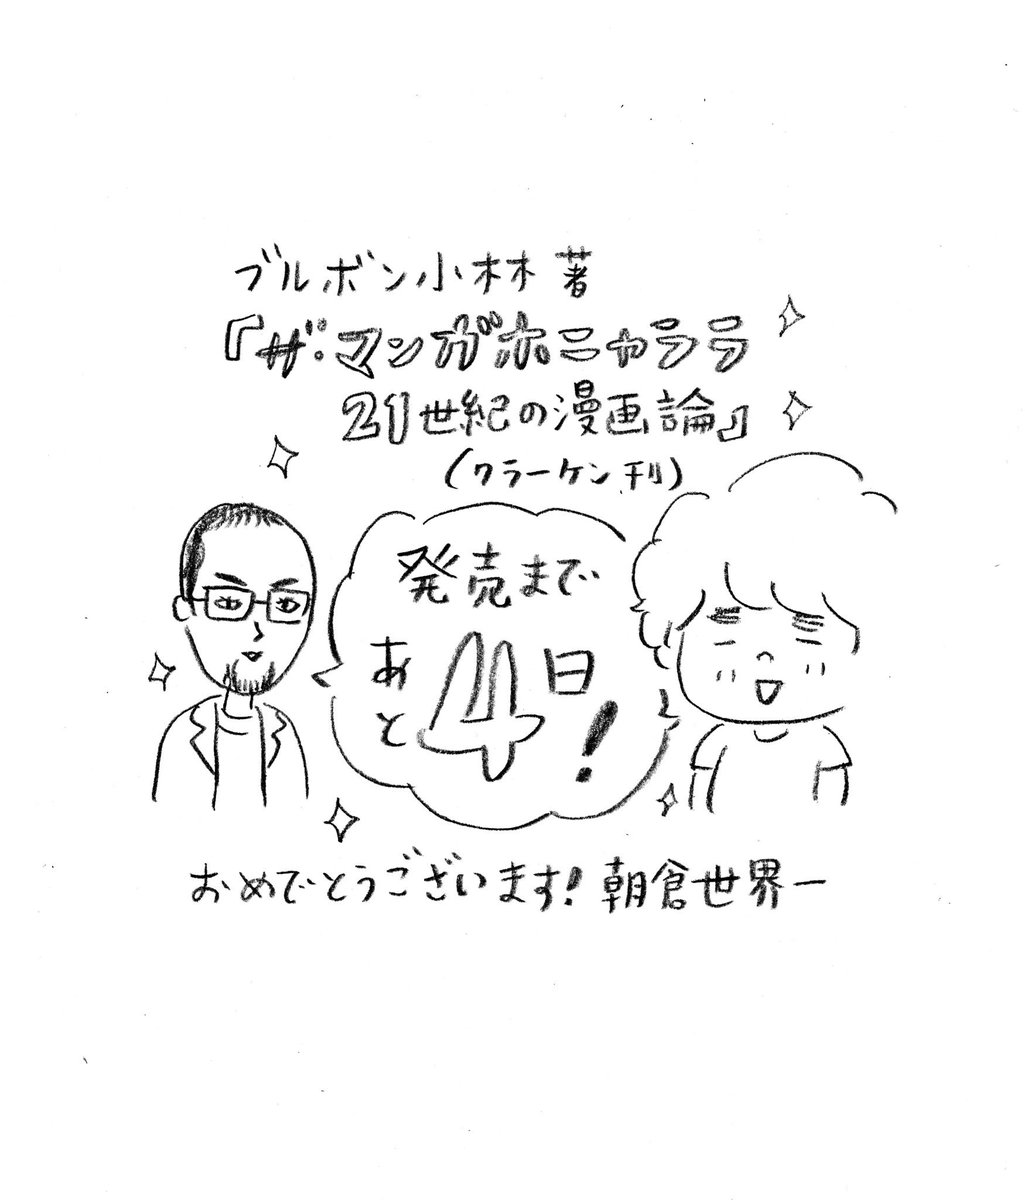 ブルボン小林 著
『ザ・マンガホニャララ
21世紀の漫画論』
(クラーケン刊)
発売まで
あと4日!
おめでとうございます!朝倉世界一